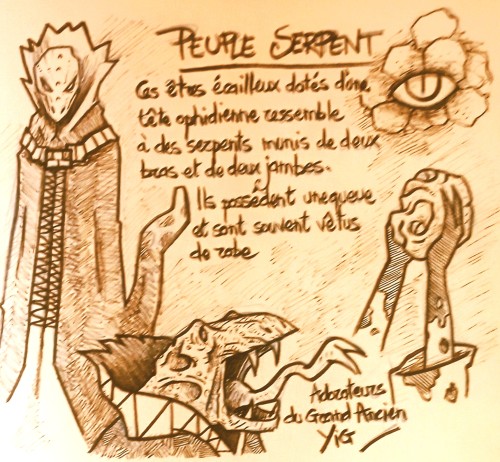 PEUPLE SERPENT
Ces êtres écailleux dotés d'une
tête ophidienne ressemble
à des serpents munis de deux
bras et de deux jambes.
Ils possèdent une queue
et sont souvent vêtus
de robe
Adorateurs
du Grand Ancien
YiG